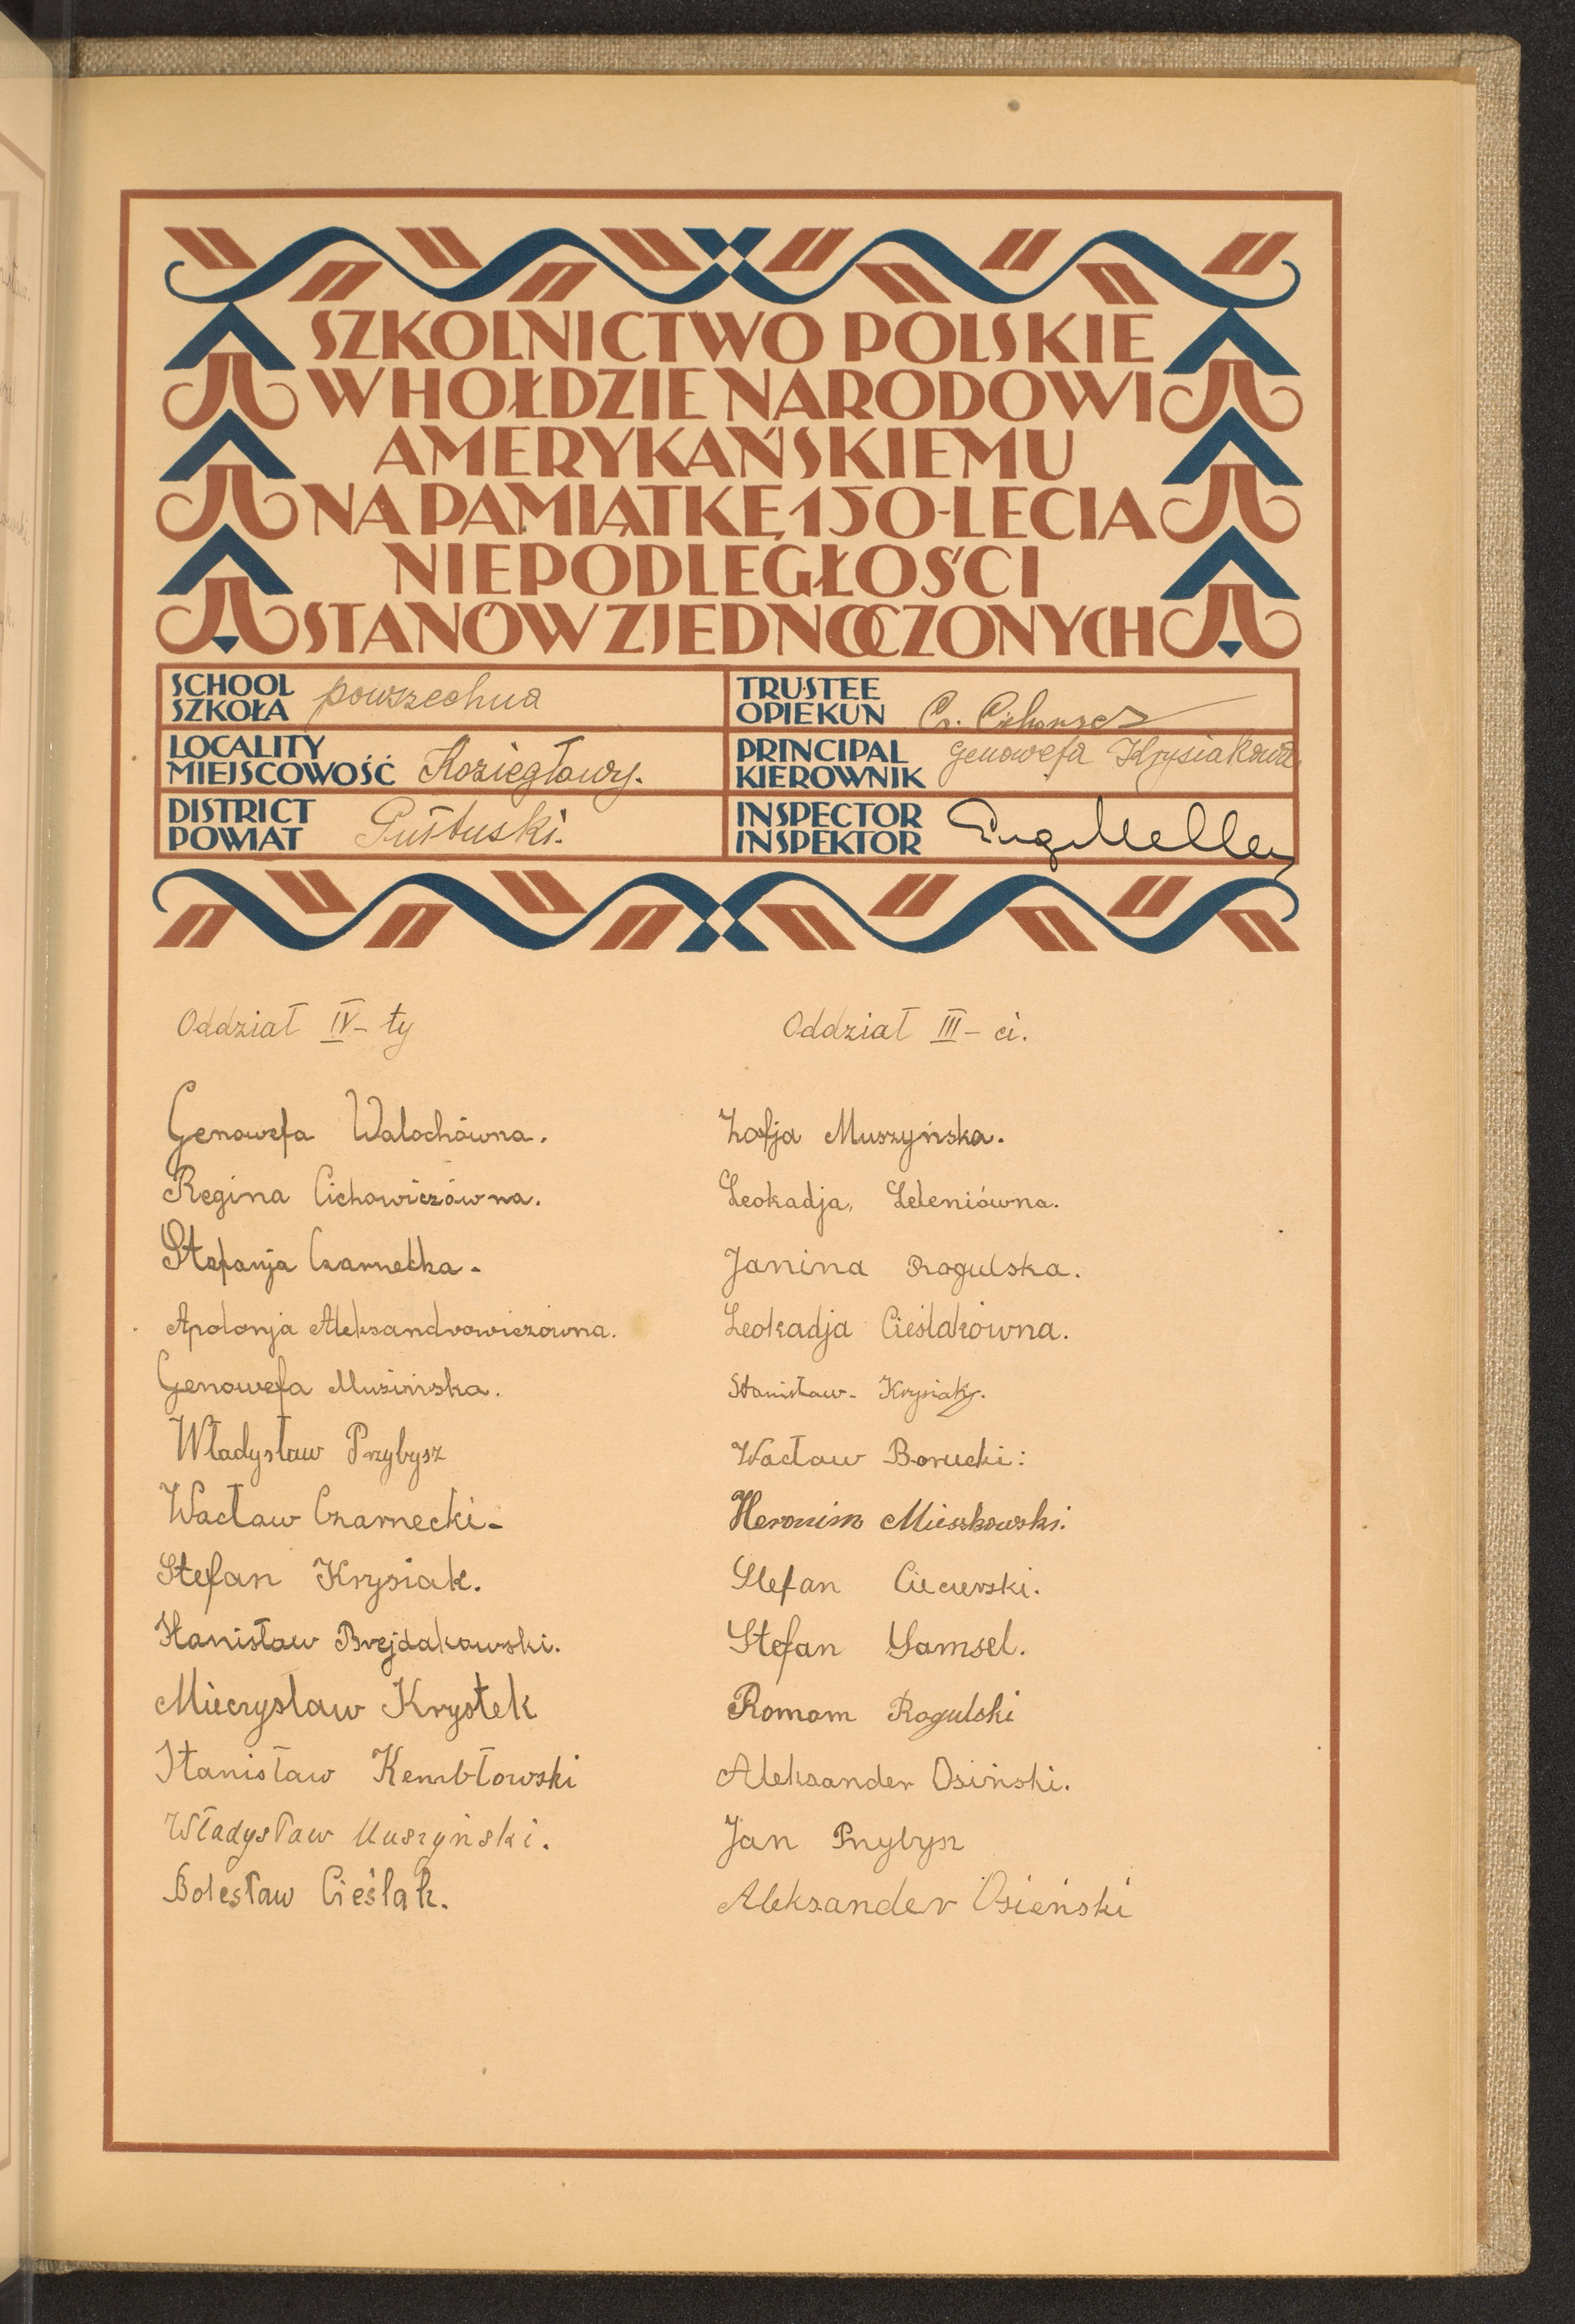 SZKOLNICTWO POLSKIE
W HOŁDZIE NARODOWI
AMERYKAŃSKIEMU
NA PAMIĄTKĘ 150-LECIA
NIEPODLEGŁOŚCI
STANÓW ZJEDNOCZONYCH
SCHOOL
SZKOŁA powszechna
TRUSTEE
OPIEKUN
LOCALITY
MIEJSCOWOŚĆ Koziegłowy.
PRINCIPAL
KIEROWNIK Genowefa Krysiakowa
DISTRICT
POWIAT Pułtuski.
INSPECTOR
INSPEKTOR
Oddział IV-ty
Genowefa Walochówna.
Regina Cichowiczówna.
Stefanja Czarnecka -
Apolonja Aleksandrowiczówna.
Genowefa Muzińska.
Władysław Przybysz
Wacław Czarnecki -
Stefan Krysiak.
Stanisław Brejdakowski.
Miecrysław Krystek
Stanisław Kembłowski
Władysław Muszyński.
Bolesław Cieślak.
Oddział III-ci.
Zofja Muszyńska.
Leokadja, Zeleniówna.
Janina Rogulska.
Leokadja Cieślakówna.
Stanisław - Krysiak.
Wacław Borucki:
Heronim Mieszkowski.
Stefan Ciecierski.
Stefan Samsel.
Roman Rogulski
Aleksander Osiński.
Jan Przybysz
Aleksander Osieński